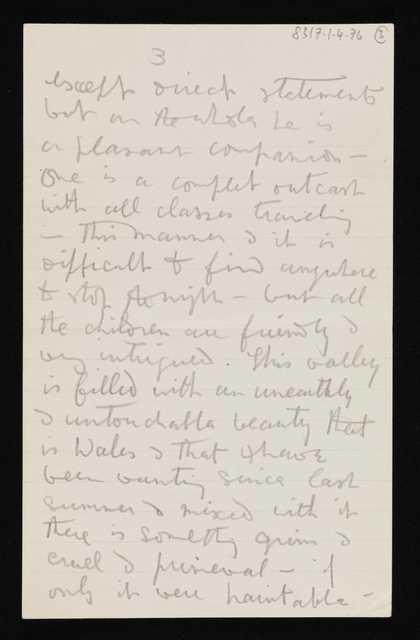 8317.1.4.76 3
3
except direct statements
but on the whole he is
a pleasant companion —
One is a complet outcast
with all classes traveling
— this manner & it is
difficult to find anywhere
to stop the night — but all
the children are friendly &
very intrigued. This valley
is filled with an unearthly
& untouchable beauty that
is Wales & that I have
been wanting since last
summer & mixed with it
there is something grim &
cruel & primeval — if
only it were paintable —